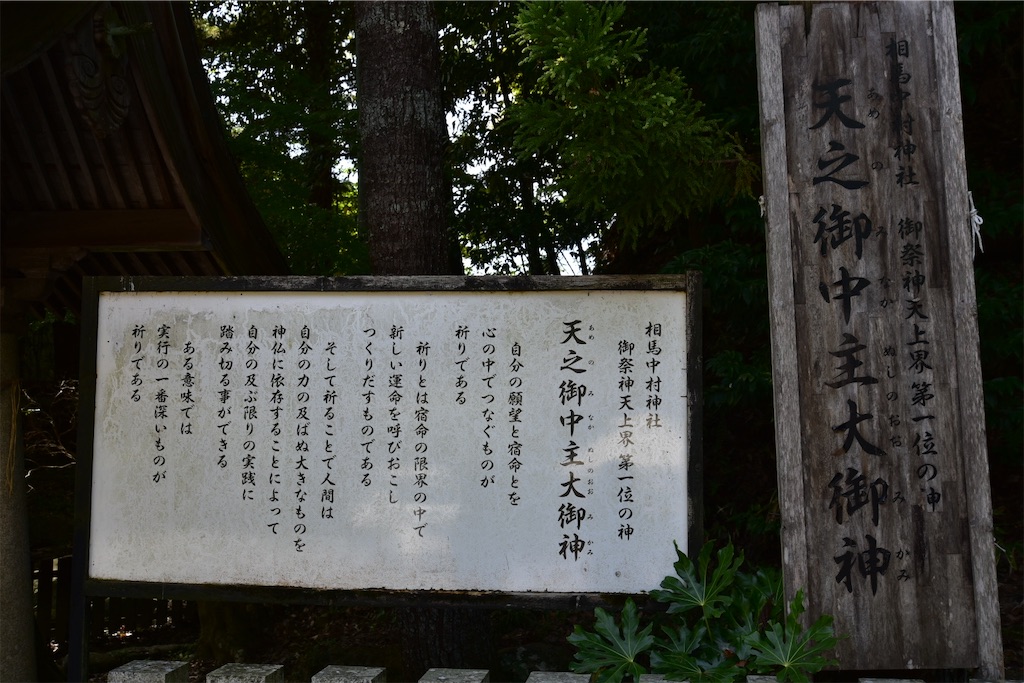 相馬中村神社
御祭神天上界第一位の神
天之御中主大御神
あめのみなかぬしのおおみかみ
自分の願望と宿命とを
心の中でつなぐものが
祈りである
祈りとは宿命の限界の中で
新しい運命を呼びおこし
つくりだすものである
そして祈ることで人間は
自分の力の及ばぬ大きなものを
神仏に依存することによって
自分の及ぶ限りの実践に
踏み切る事ができる
ある意味では
実行の一番深いものが
祈りである
相馬中村神社 御祭神天上界第一位の神
天之御中主大御神
あめのみなかぬしのおおみかみ